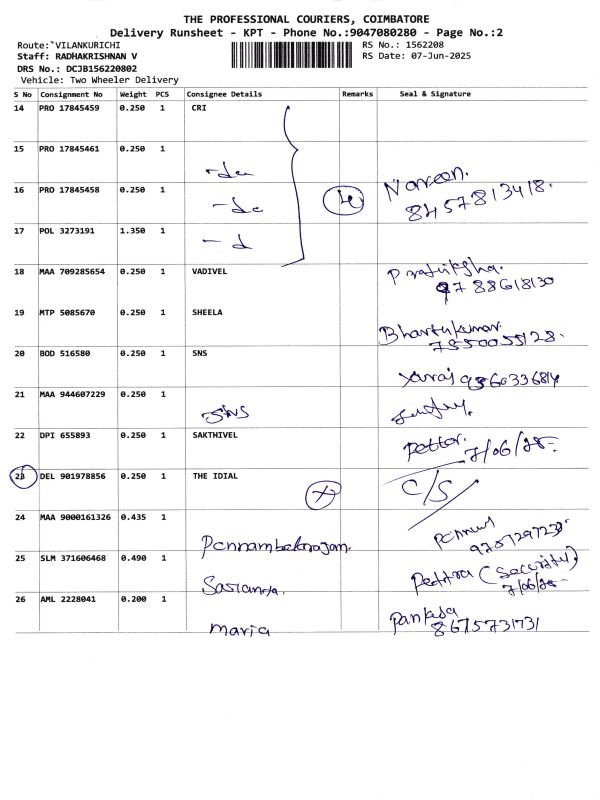 THE PROFESSIONAL COURIERS, COIMBATORE
Delivery Runsheet - KPT - Phone No.:9047080280 - Page No.:2
Route: VILANKURICHI
RS No.: 1562208
Staff: RADHAKRISHNAN V
RS Date: 07-Jun-2025
DRS No.: DCJB156220802
Vehicle: Two Wheeler Delivery
S No Consignment No Weight PCS Consignee Details Remarks Seal & Signature
14 PRO 17845459 0.250 1 CRI
15 PRO 17845461 0.250 1
16 PRO 17845458 0.250 1 Naveen.
8457813418.
17 POL 3273191 1.350 1
18 MAA 709285654 0.250 1 VADIVEL
9788618130
19 MTP 5085670 0.250 1 SHEELA
Bharthkumar
7550055128.
20 BOD 516580 0.250 1 SNS
21 MAA 944607229 0.250 1 SNS
22 DPI 655893 0.250 1 SAKTHIVEL
7/06/25
23 DEL 901978856 0.250 1 THE IDIAL C/S
24 MAA 9000161326 0.435 1
25 SLM 371606468 0.490 1 (Security)
7/06/25
26 AML 2228041 0.200 1 maria
8675731731